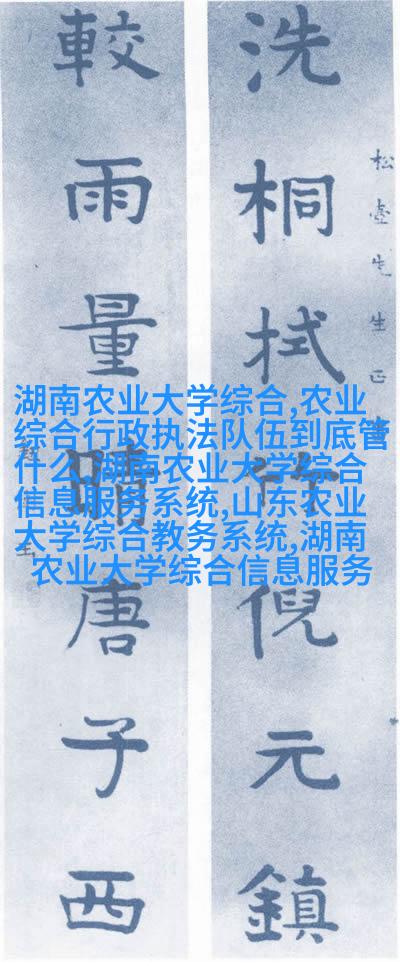 洗桐拭竹倪元鎮
較雨量晴唐子西
湖南农业大学综合,农业
综合行政执法队伍到底管
什么,湖南农业大学综合
信息服务系统,山东农业
大学综合教务系统,湖南
农业大学综合信息服务